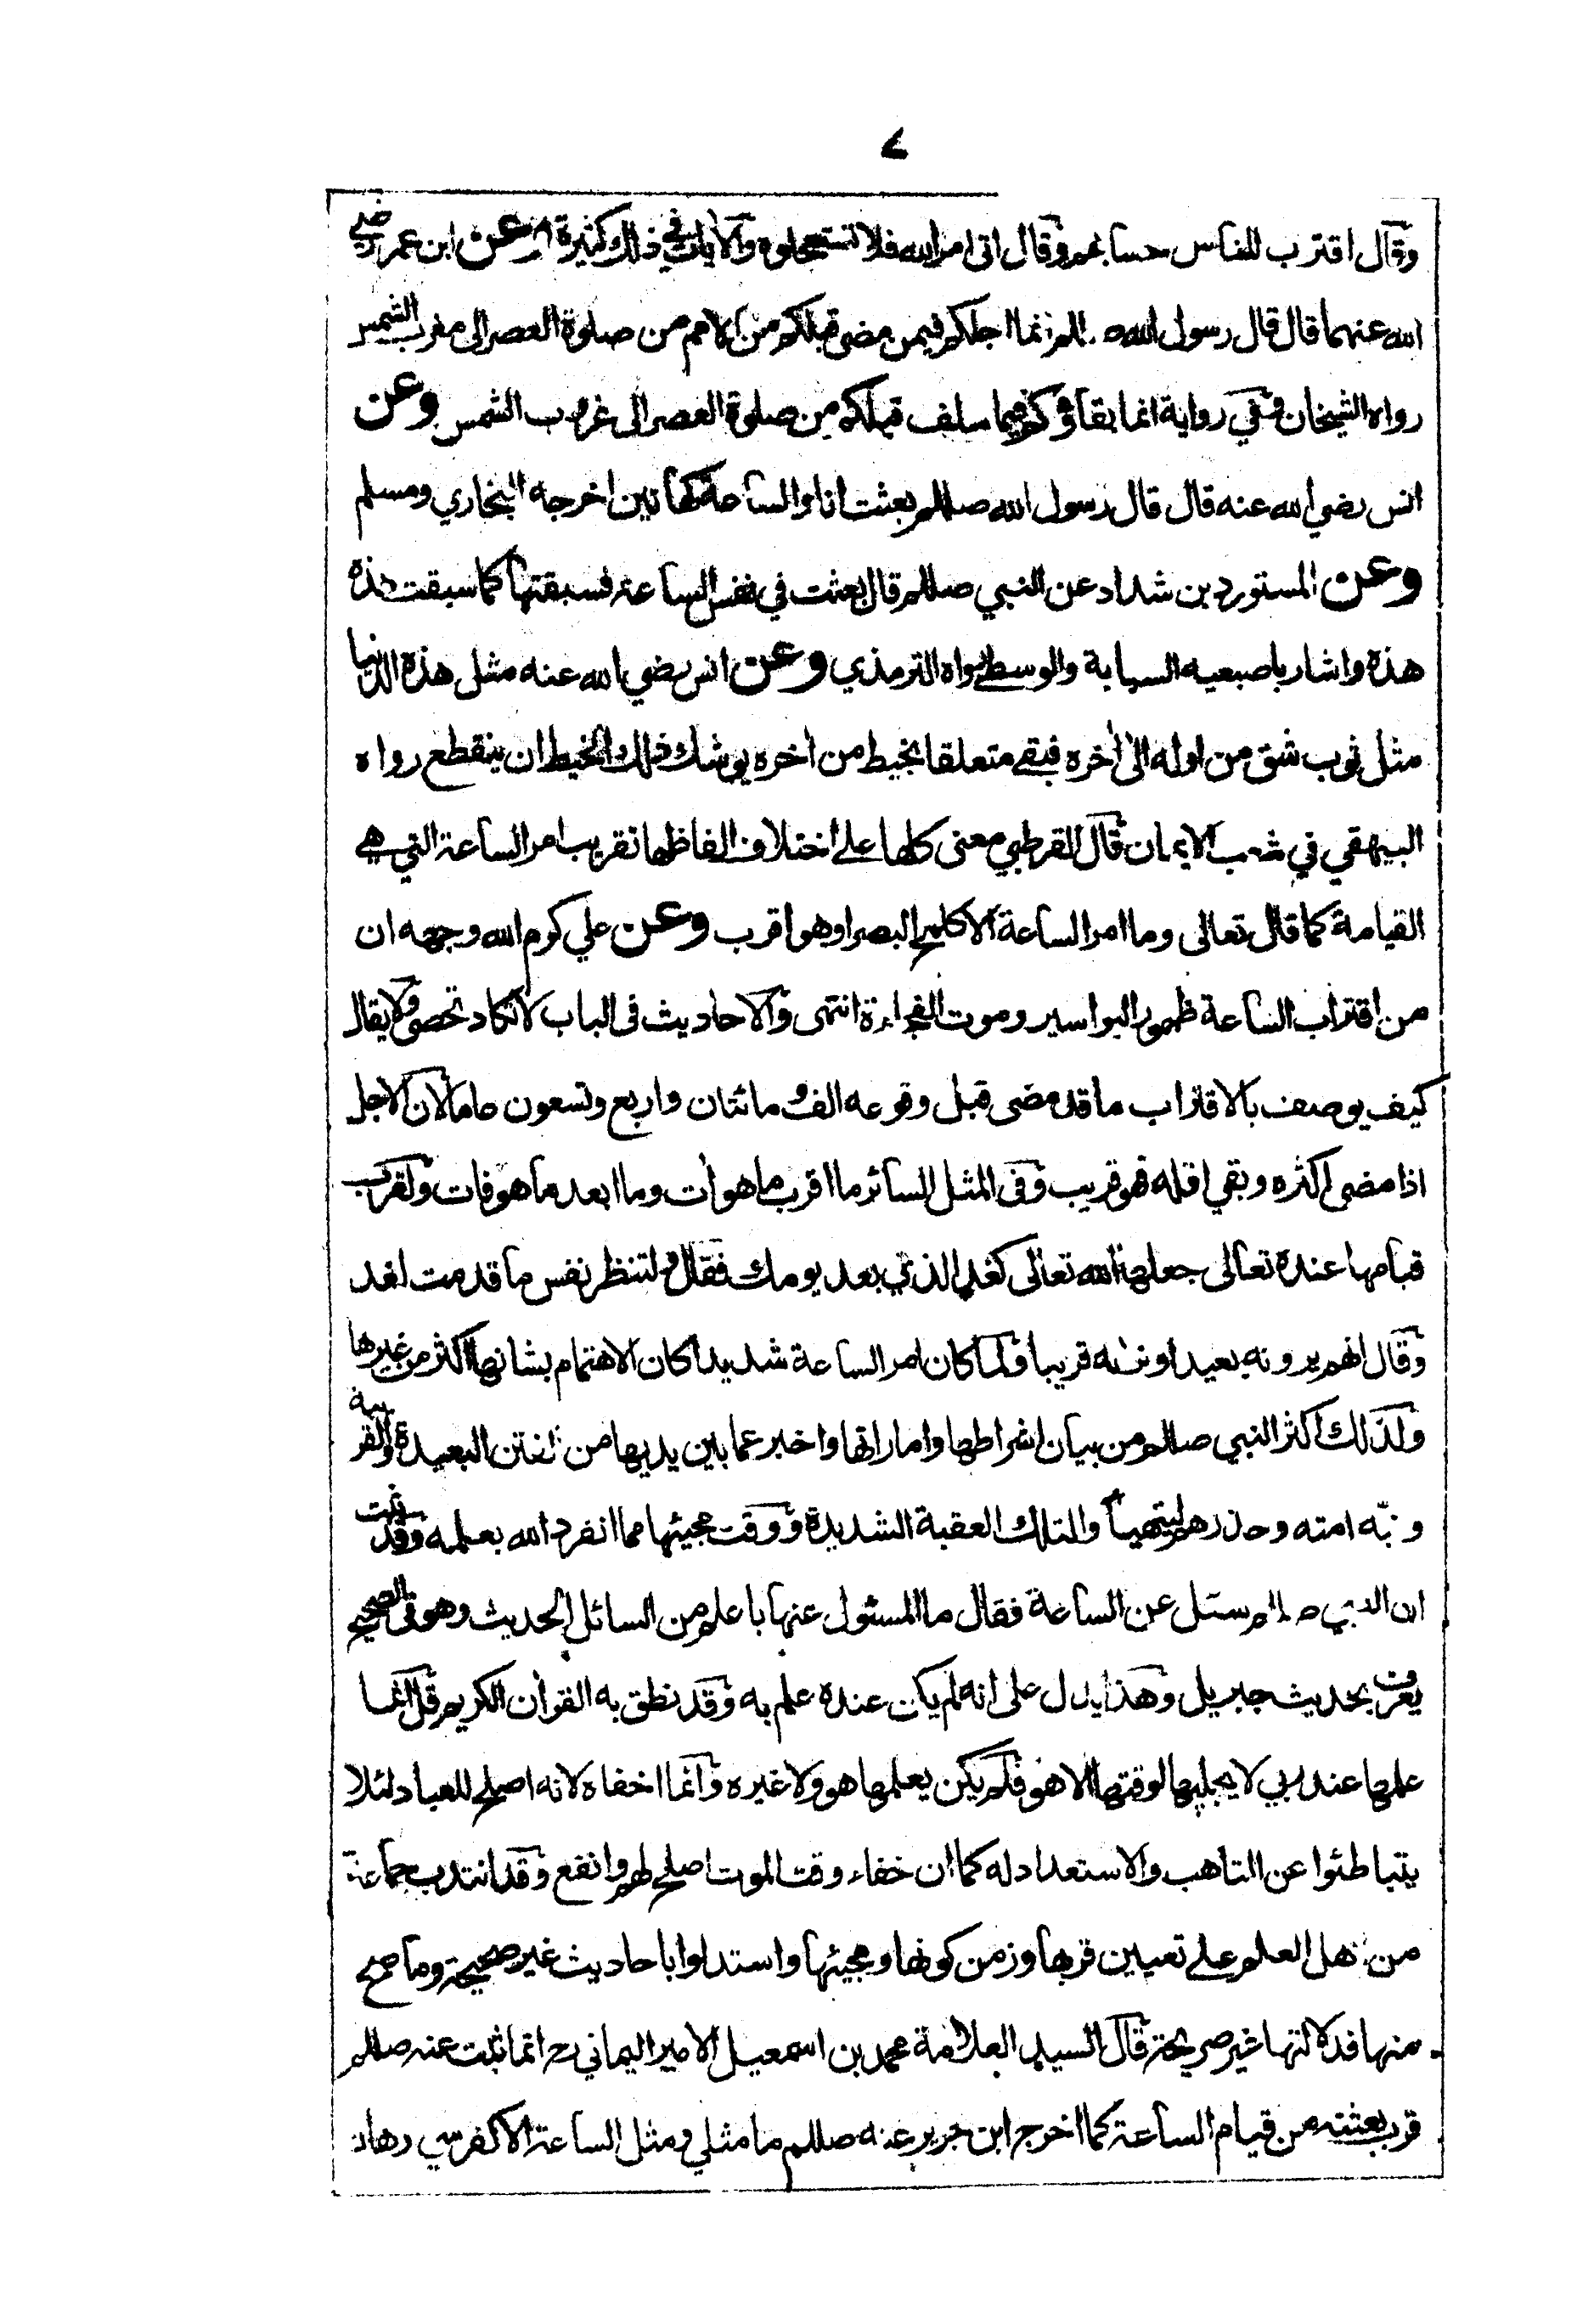 ٤
وقال اقترب للناس حسابهم وقال اتى امر الله فلا تستعجلوه والآيات في ذلك كثيرة وعن ابن عمر رضي
الله عنهما قال قال رسول الله صللم انما اجلكم فيمن مضى قبلكم من الامم من صلوة العصر الى مغرب الشمس
رواه الشيخان وفي رواية انما بقاؤكم فيما سلف قبلكم من صلوة العصر الى غروب الشمس وعن
انس رضي الله عنه قال قال رسول الله صللم بعثت انا والساعة كهاتين اخرجه البخاري ومسلم
وعن المستورد بن شداد عن النبي صللم قال بعثت في نفس الساعة فسبقتها كما سبقت هذه
هذه واشار باصبعيه السبابة والوسطى رواه الترمذي وعن انس رضي الله عنه مثل هذه الدنيا
مثل ثوب شق من اوله الى آخره فبقي متعلقا بخيط من آخره يوشك ذلك الخيط ان ينقطع رواه
البيهقي في شعب الايمان قال القرطبي معنى كلها على اختلاف الفاظها تقريب امر الساعة التي هي
القيامة كما قال تعالى وما امر الساعة الا كلمح البصر او هو اقرب وعن علي كرم الله وجهه ان
من اقتراب الساعة ظهور البواسير وموت الفجاءة انتهى والاحاديث في الباب لا تكاد تحصى ولا يقال
كيف يوصف بالاقتراب ما قد مضى قبل وقوعه الف ومائتان واربع وتسعون عاما لان الاجل
اذا مضى اكثره وبقي اقله فهو قريب وفى المثل السائر ما اقرب ما هو آت وما ابعد ما هو فات ولقرب
قيامها عنده تعالى جعلها الله تعالى كغد الذي بعد يومك فقال ولتنظر نفس ما قدمت لغد
وقال انهم يرونه بعيدا ونراه قريبا ولما كان امر الساعة شديدا كان الاهتمام بشانها اكثر من غيرها
ولذلك اكثر النبي صللم من بيان اشراطها واماراتها واخبر عما بين يديها من الفتن البعيدة والقريبة
ونبّه امته وحذرهم ليتهياوا لتلك العقبة الشديدة ووقت مجيئها مما انفرد الله بعلمه وقد ثبت
ان النبي صللم سئل عن الساعة فقال ما المسئول عنها باعلم من السائل الحديث وهو في الصحيح
يعرف بحديث جبريل وهذا يدل على انه لم يكن عنده علم به وقد نطق به القرآن الكريم قل انما
علمها عند ربي لا يجليها لوقتها الا هو فلم يكن يعلمها هو ولا غيره وانما اخفاه لانه اصلح للعباد لئلا
يتباطئوا عن التاهب والاستعداد له كما ان خفاء وقت الموت اصلح لهم وانفع وقد انتدب جماعة
من اهل العلم على تعيين قربها وزمن كونها ومجيئها واستدلوا باحاديث غير صحيحة وما صح
منها فدلالتها غير صريحة قال السيد العلامة محمد بن اسمعيل الامير اليماني رح انما ثبت عنه صللم
قرب بعثته من قيام الساعة كما اخرج ابن جرير عنه صللم ما مثلي ومثل الساعة الا كفرسي رهان